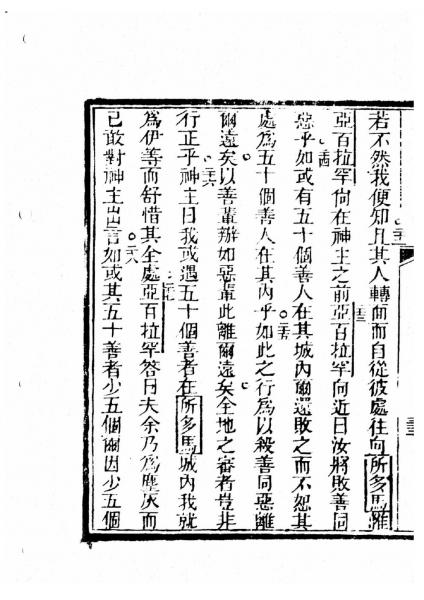 若不然我便知且其人轉面而自從彼處往向所多馬惟
亞百拉罕尚在神主之前亞百拉罕向近曰汝將敗善同
惡乎如或有五十個善人在其城內爾還敗之而不恕其
處為五十個善人在其內乎如此之行為以殺善同惡離
爾遠矣以善輩辦如惡輩此離爾遠矣全地之審者豈非
行正乎神主曰我或遇五十個善者在所多馬城內我就
為伊等而舒惜其全處亞百拉罕答曰夫余乃為塵灰而
已敢對神主出言如或其五十善者少五個爾因少五個